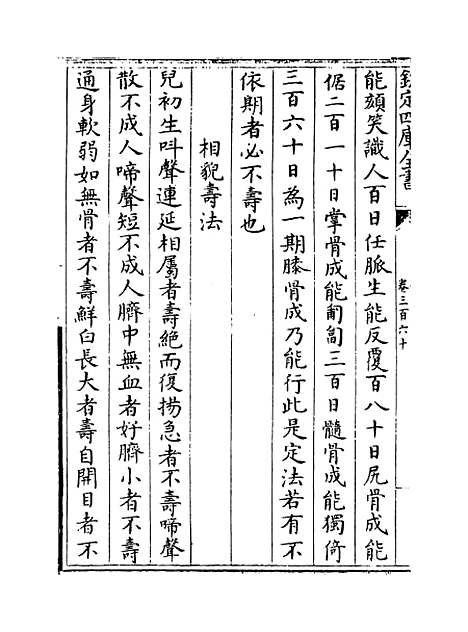 欽定四庫全書
卷三百六十
能頦笑識人百日任脈生能反覆百八十日尻骨成能
倨二百一十日掌骨成能匍匐三百日髓骨成能獨倚
三百六十日為一期膝骨成乃能行此是定法若有不
依期者必不壽也
相貌壽法
兒初生叫聲連延相屬者壽絕而復揚急者不壽啼聲
散不成人啼聲短不成人臍中無血者好臍小者不壽
通身軟弱如無骨者不壽鮮白長大者壽自開目者不